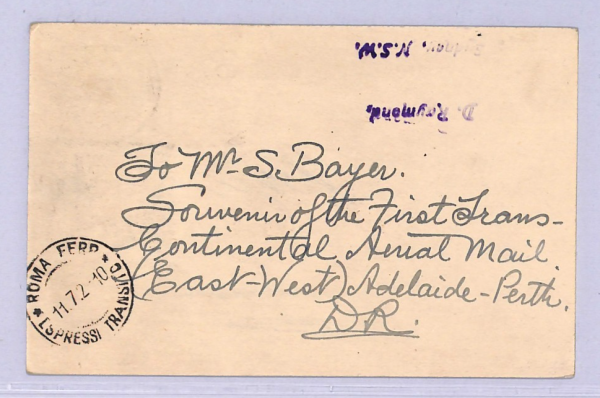 Sydney, N.S.W.
D. Raymond,
To Mr. S. Bayer.
Souvenir of the First Trans-
Continental Aerial Mail
(East-West) Adelaide-Perth.
D.R.
* ROMA FERR *
11.7.2 10
ESPRESSI TRANSITO